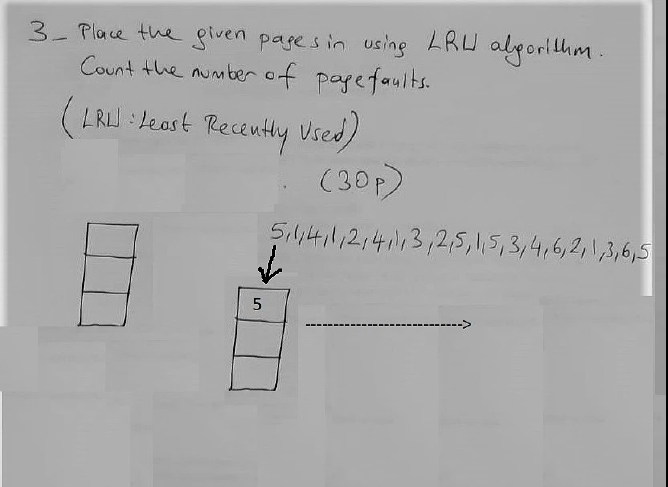 3_ Place the given pages in using LRU algorithm.
Count the number of page faults.
(LRU : Least Recently Used)
(30p)
5,1,4,1,2,4,1,3,2,5,1,5,3,4,6,2,1,3,6,5
5